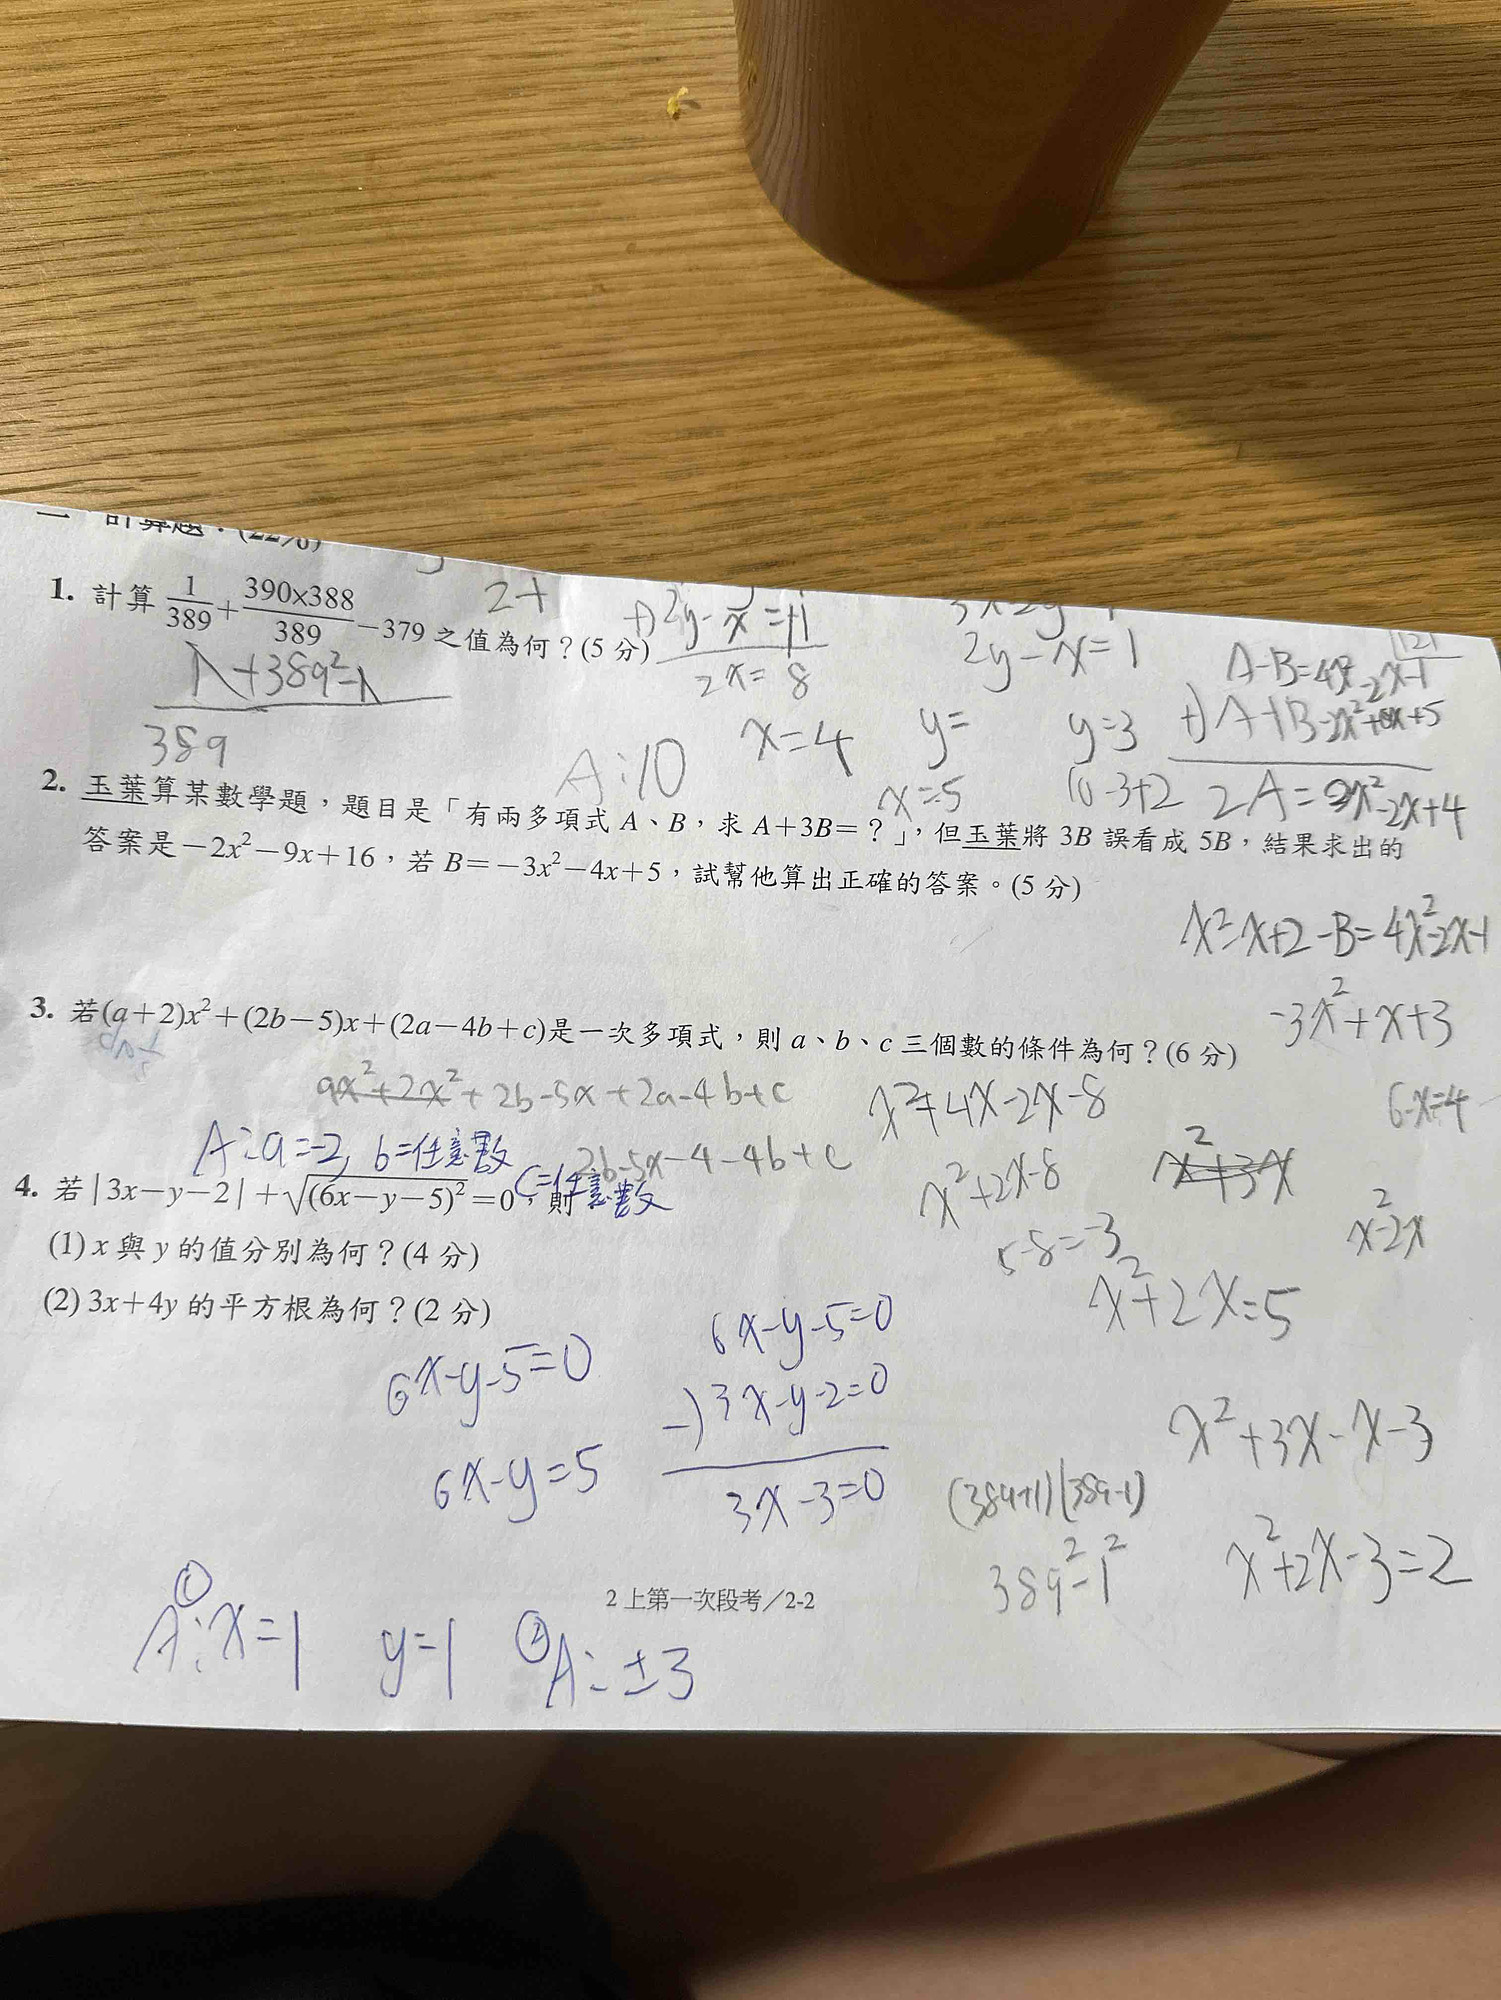 計算題：(22%)
1. 計算 1/389 + 390×388/389 − 379 之值為何？(5 分)
2+
+) 2y-x=+1
2x=8
x=4
2y-x=1
y=
y=3
x=5
10-3+2
1+389²-1
389
A:10
A-B=4x²-2x-1
+) A+B-2x²+5
2A=2x²-2x+4
2. 玉葉算某數學題，題目是「有兩多項式 A、B，求 A+3B=？」，但玉葉將 3B 誤看成 5B，結果求出的
答案是 −2x²−9x+16，若 B=−3x²−4x+5，試幫他算出正確的答案。(5 分)
x²-x+2-B=4x²-2x-1
-3x²+x+3
3. 若(a+2)x²+(2b−5)x+(2a−4b+c)是一次多項式，則 a、b、c 三個數的條件為何？(6 分)
ax²+2x²+2b-5x+2a-4b+c
x²+4x-2x-8
6-x=4
A:a=-2, b=任意數
c=任意數
2b-5x-4-4b+c
x²+2x-8
x²+3x
x²-2x
4. 若 |3x−y−2|+√(6x−y−5)²=0，則
(1) x 與 y 的值分別為何？(4 分)
5-8=-3
(2) 3x+4y 的平方根為何？(2 分)
x²+2x=5
6x-y-5=0
6x-y=5
6x-y-5=0
-) 3x-y-2=0
3x-3=0
x²+3x-x-3
(389+1)(389-1)
389²-1²
x²+2x-3=2
2 上第一次段考／2-2
① A:x=1 y=1 ② A:±3